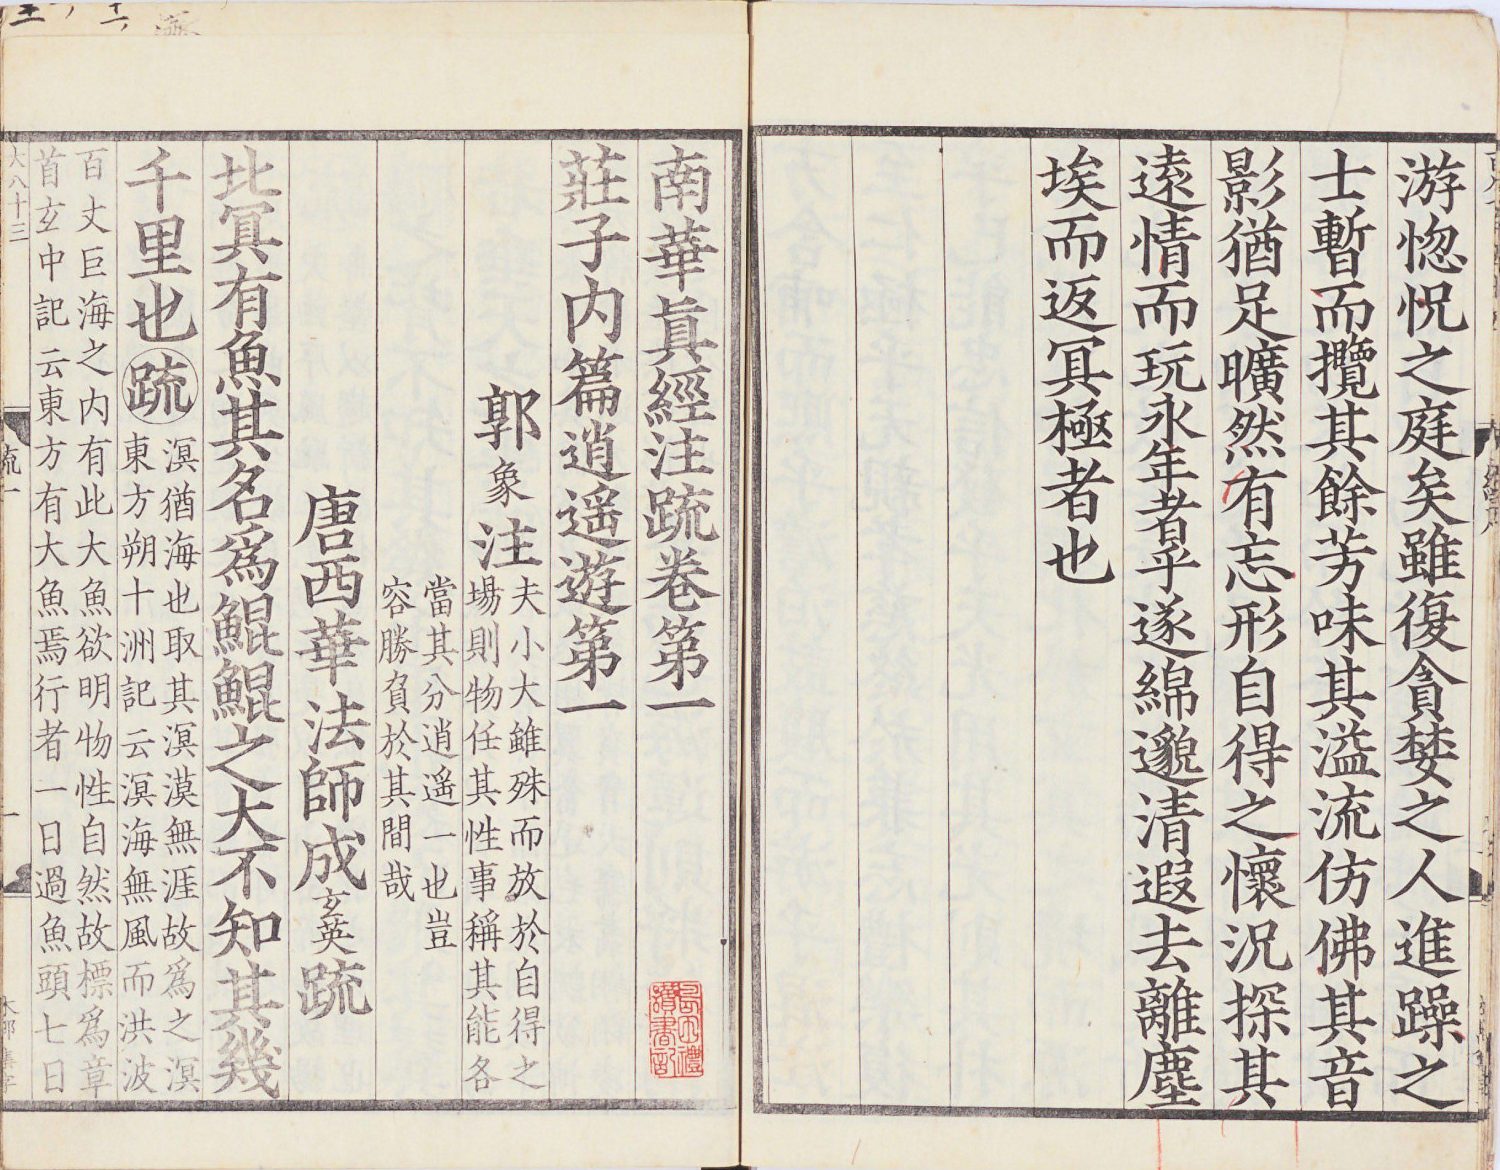 游惚怳之庭矣雖復貪婪之人進躁之
士暫而攬其餘芳味其溢流仿佛其音
影猶足曠然有忘形自得之懷況探其
遠情而玩永年者乎遂綿邈清遐去離塵
埃而返冥極者也
南華眞經注疏卷第一
莊子內篇逍遙遊第一
郭象注
夫小大雖殊而放於自得之
場則物任其性事稱其能各
當其分逍遙一也豈
容勝負於其間哉
唐西華法師成玄英疏
北冥有魚其名爲鯤鯤之大不知其幾
千里也疏
溟猶海也取其溟漠無涯故爲之溟
東方朔十洲記云溟海無風而洪波
百丈巨海之內有此大魚欲明物性自然故標爲章
首玄中記云東方有大魚焉行者一日過魚頭七日
大八十三
疏一
一